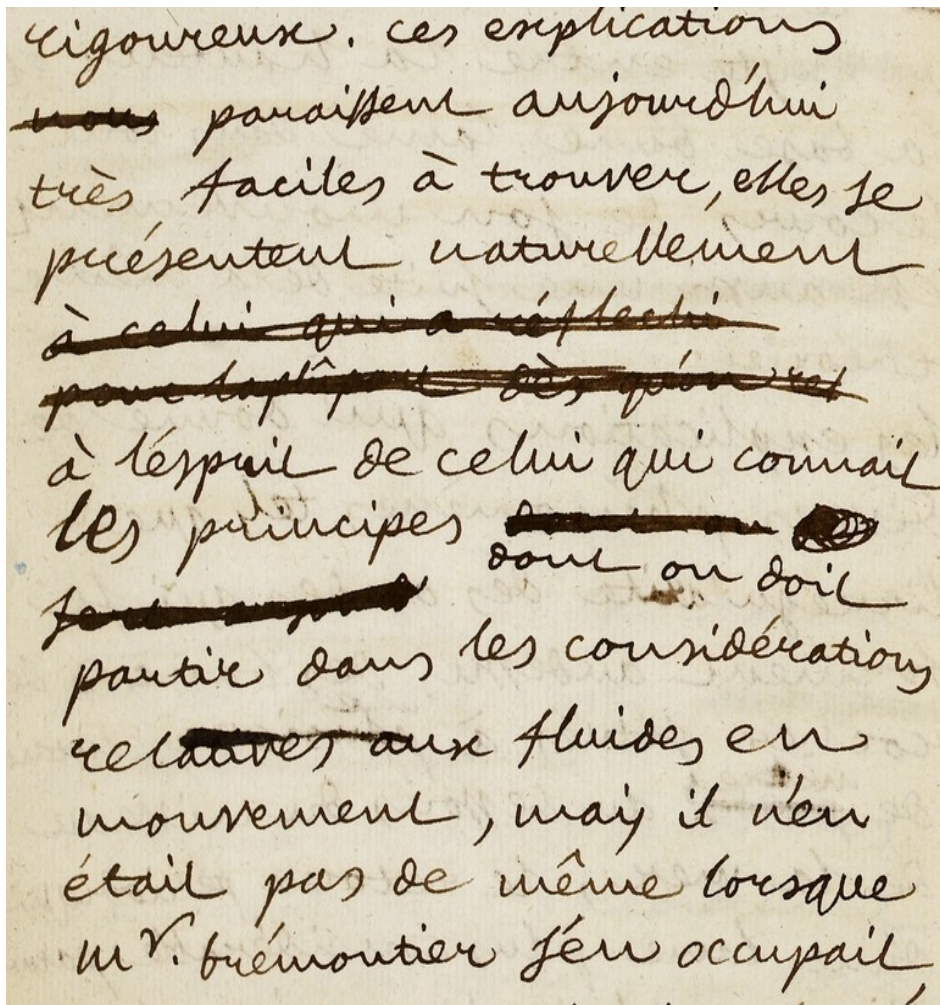 rigoureux. ces explications
nous paraissent aujourd'hui
très faciles à trouver, elles se
présentent naturellement
à celui qui a réfléchi
pour la plûpart dès qu'on est
à l'ésprit de celui qui connait
les principes
dont on doit
partir dans les considérations
relatives aux fluides en
mouvement, mais il n'en
était pas de même lorsque
mr. brémontier s'en occupait,